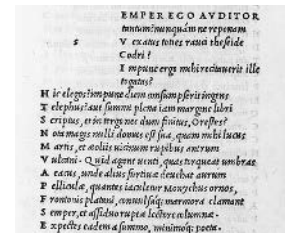 EMPER EGO AVDITOR
tantum? nunquám ne reponam
S V exatus toties rauci theseide
Codri?
I mpune ergo mihi recitauerit ille
togatas?
H ic elegos? impune diem consumpserit ingens
T elephus? aut summi plena iam margine libri
S criptus, et in tergo nec dum finitus, Orestes?
N ota magis nulli domus est sua, quam mihi lucus
M artis, et aeoliis uicinum rupibus antrum
V ulcani. Quid agant uenti, quas torqueat umbras
A eacus, unde alius furtiuae deuehat aurum
P elliculae, quantas iaculetur Monychus ornos,
F rontonis platani, conuulsáq; marmora clamant
S emper, et assiduo ruptae lectore columnae.
E xpectes eadem a summo, minimóq; poeta.